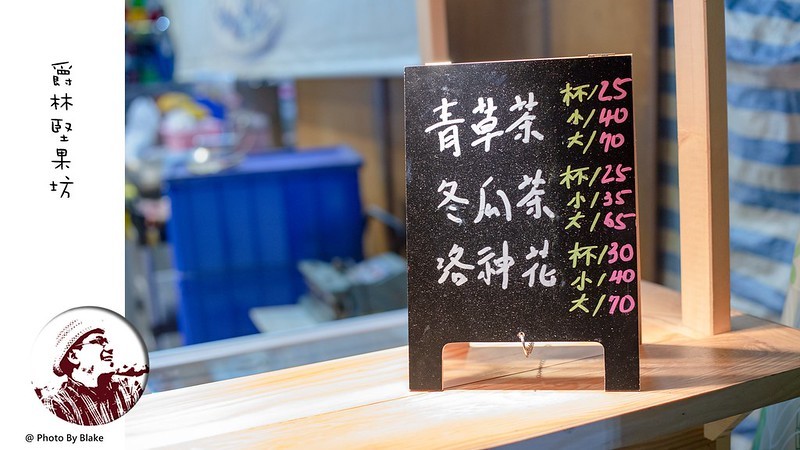 爵林堅果坊
青草茶
杯/25
小/40
大/70
冬瓜茶
杯/25
小/35
大/65
洛神花
杯/30
小/40
大/70
@ Photo By Blake